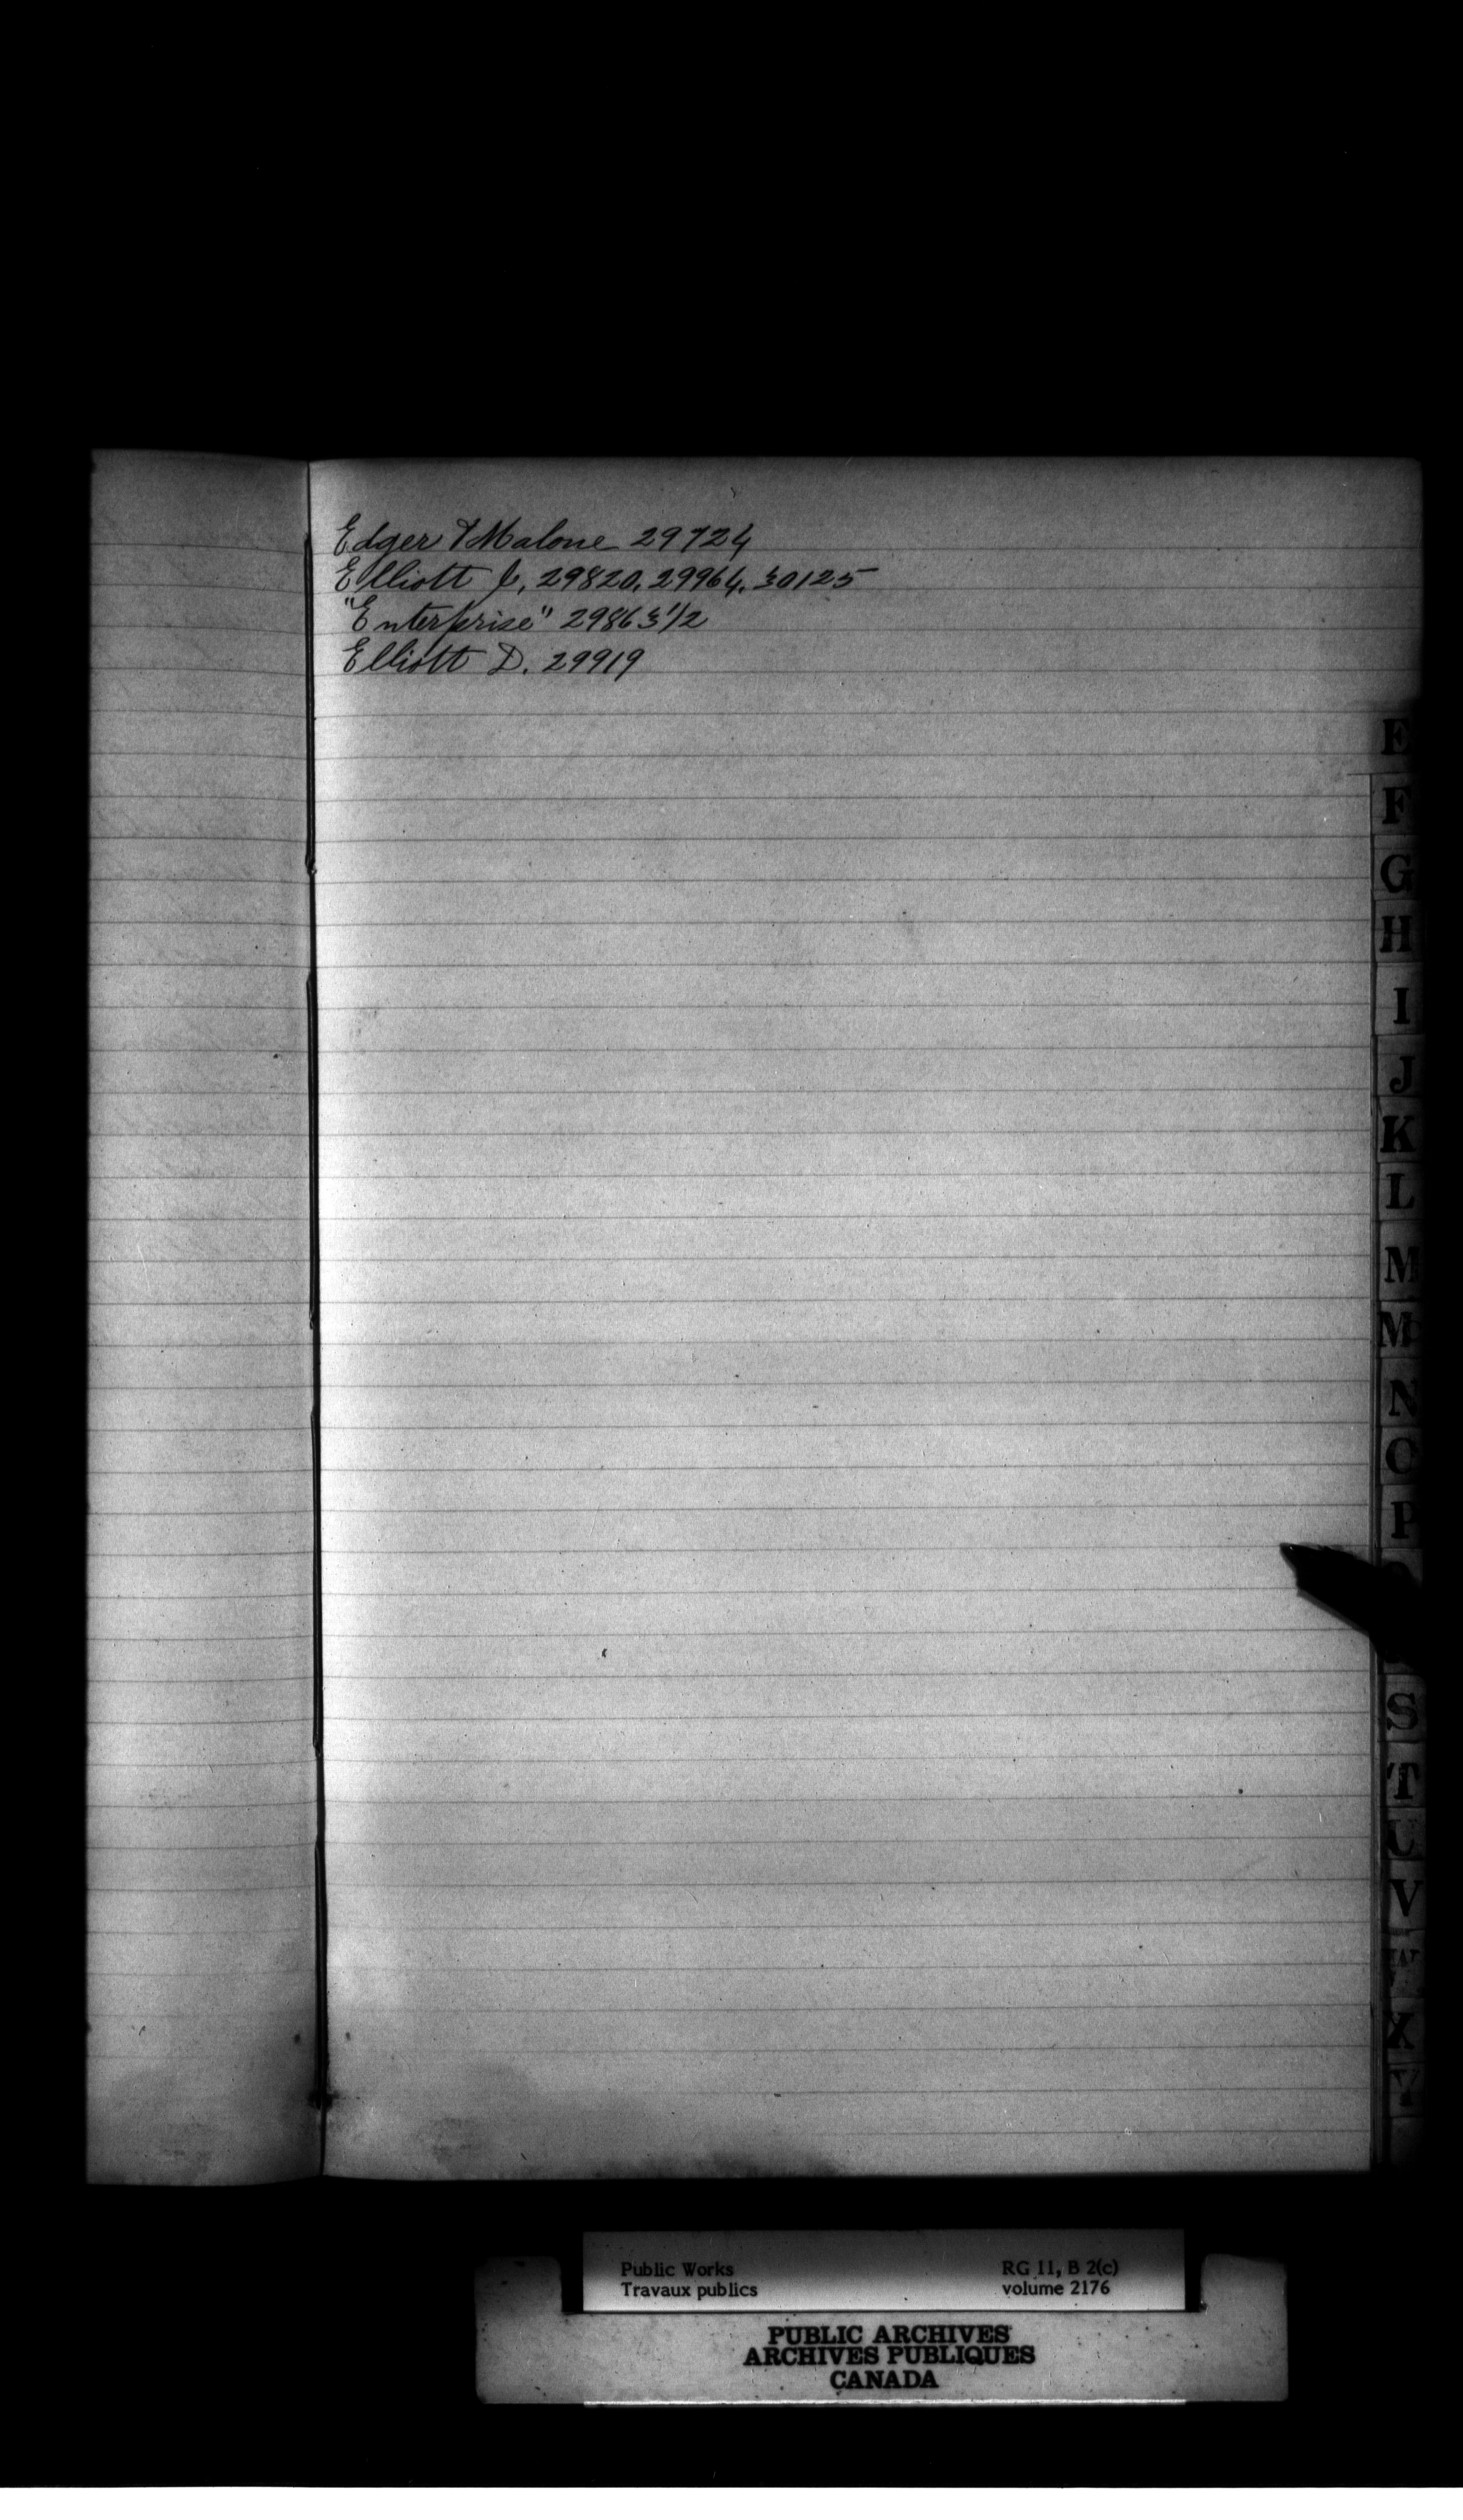 Edger & Malone 29724
Elliott J, 29820, 29964, 30125
"Enterprise" 29863 1/2
Elliott D. 29919
E
F
G
H
I
J
K
L
M
Mc
N
O
P
S
T
U
V
W
X
Y
Public Works
Travaux publics
RG 11, B 2(c)
volume 2176
PUBLIC ARCHIVES
ARCHIVES PUBLIQUES
CANADA